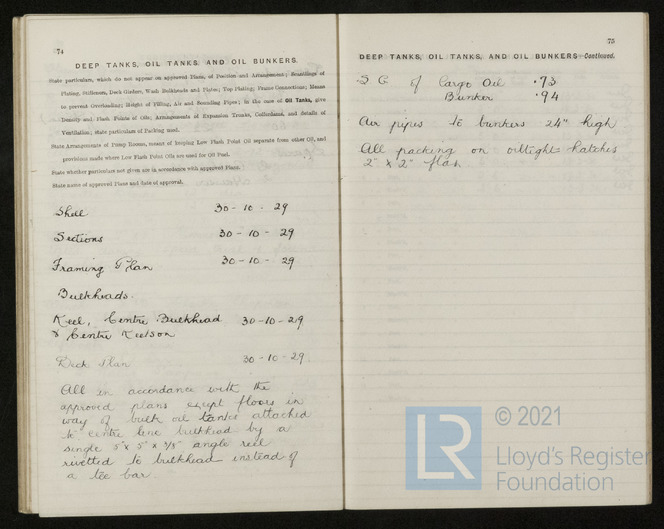 74
DEEP TANKS, OIL TANKS AND OIL BUNKERS.
State particulars, which do not appear on approved Plans, of Position and Arrangement; Scantlings of
Plating, Stiffeners, Deck Girders, Wash Bulkheads and Plates; Top Plating; Frame Connections; Means
to prevent Overloading; Height of Filling, Air and Sounding Pipes; in the case of Oil Tanks, give
Density and Flash Points of Oils; Arrangements of Expansion Trunks, Cofferdams, and details of
Ventilation; state particulars of Packing used.
State Arrangements of Pump Rooms, means of keeping Low Flash Point Oil separate from other Oil, and
provisions made where Low Flash Point Oils are used for Oil Fuel.
State whether particulars not given are in accordance with approved Plans.
State name of approved Plans and date of approval.
Shell 30-10-29
Sections 30-10-29
Framing Plan 30-10-29
Bulkheads.
Keel, Centre Bulkhead 30-10-29
& Centre Keelson
Deck Plan 30-10-29
All in accordance with the
approved plans except floors in
way of bulk oil tanks attached
to centre line bulkhead by a
single 5" x 5" x 3/8" angle
rivetted to bulkhead instead of
a tee bar
75
DEEP TANKS, OIL TANKS, AND OIL BUNKERS—Continued.
S.G. of Cargo Oil .93
Bunker .94
Air pipes to bunkers 24" high
All packing on oiltight hatches
2" x 2" flax
© 2021
LR
Lloyd's Register
Foundation